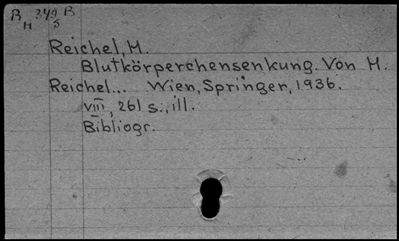 B 349 B
H S
Reichel, M.
Blutkörperchensenkung. Von M.
Reichel... Wien, Springer, 1936.
VIII, 261 s., ill.
Bibliogr.